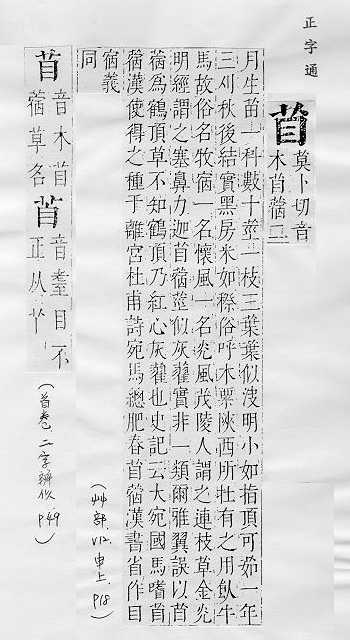 正字通
苜
莫卜切音
木苜蓿二
月生苗一科數十莖一枝三葉葉似決明小如指頂可茹一年
三刈秋後結實黑房米如穄俗呼木栗陝西所在有之用飤牛
馬故俗名牧宿一名懷風一名光風茂陵人謂之連枝草金光
明經謂之塞鼻力迦苜蓿莖似灰藋實非一類爾雅翼誤以苜
蓿為鶴頂草不知鶴頂乃紅心灰藋也史記云大宛國馬嗜苜
蓿漢使得之種于離宮杜甫詩宛馬總肥春苜蓿漢書省作目
宿義
同
(艸部 V12. 申上. P18)
苜
音木苜
蓿草名
苜
音目不
正从
(首卷 二字辨似 P49)